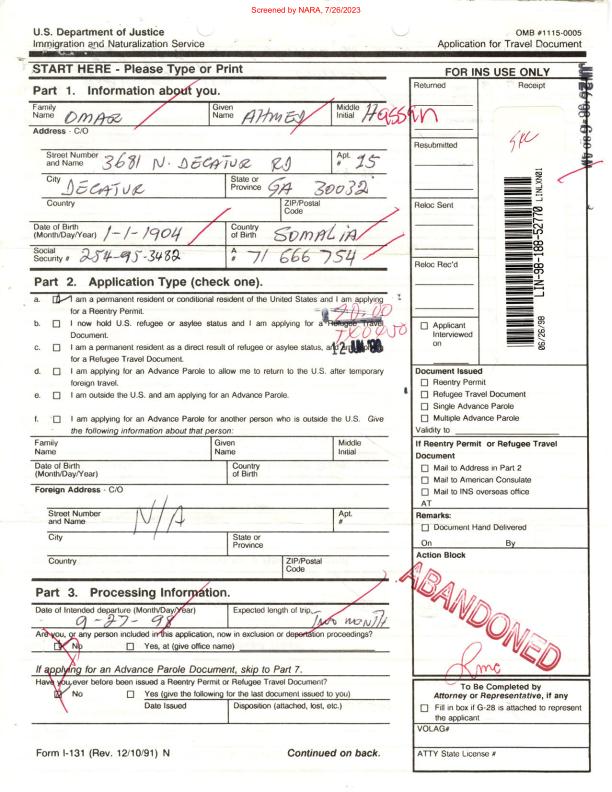 Screened by NARA, 7/26/2023
U.S. Department of Justice
Immigration and Naturalization Service
OMB #1115-0005
Application for Travel Document
START HERE - Please Type or Print
Part 1. Information about you.
Family Name OMAR Given Name AHMED Middle Initial Hassan
Address - C/O
Street Number and Name 3681 N. DECATUR RD Apt. # 95
City DECATUR State or Province GA 30032
Country ZIP/Postal Code
Date of Birth (Month/Day/Year) 1-1-1904 Country of Birth SOMALIA
Social Security # 254-95-3482 A # 71 666 754
Part 2. Application Type (check one).
a. I am a permanent resident or conditional resident of the United States and I am applying
for a Reentry Permit.
b. I now hold U.S. refugee or asylee status and I am applying for a Refugee Travel
Document.
c. I am a permanent resident as a direct result of refugee or asylee status, and am applying
for a Refugee Travel Document.
12 JUN '98
d. I am applying for an Advance Parole to allow me to return to the U.S. after temporary
foreign travel.
e. I am outside the U.S. and am applying for an Advance Parole.
f. I am applying for an Advance Parole for another person who is outside the U.S. Give
the following information about that person:
Family Name Given Name Middle Initial
Date of Birth (Month/Day/Year) Country of Birth
Foreign Address - C/O
Street Number and Name N/A Apt. #
City State or Province
Country ZIP/Postal Code
Part 3. Processing Information.
Date of Intended departure (Month/Day/Year) 9-27-98 Expected length of trip Two month
Are you, or any person included in this application, now in exclusion or deportation proceedings?
No Yes, at (give office name)
If applying for an Advance Parole Document, skip to Part 7.
Have you ever before been issued a Reentry Permit or Refugee Travel Document?
No Yes (give the following for the last document issued to you)
Date Issued Disposition (attached, lost, etc.)
Form I-131 (Rev. 12/10/91) N
Continued on back.
FOR INS USE ONLY
Returned Receipt
Resubmitted
Reloc Sent
Reloc Rec'd
LIN-98-188-52770 LINLXN01
06/26/98
Applicant Interviewed on
Document Issued
Reentry Permit
Refugee Travel Document
Single Advance Parole
Multiple Advance Parole
Validity to
If Reentry Permit or Refugee Travel
Document
Mail to Address in Part 2
Mail to American Consulate
Mail to INS overseas office
AT
Remarks:
Document Hand Delivered
On By
Action Block
ABANDONED
To Be Completed by
Attorney or Representative, if any
Fill in box if G-28 is attached to represent
the applicant
VOLAG#
ATTY State License #